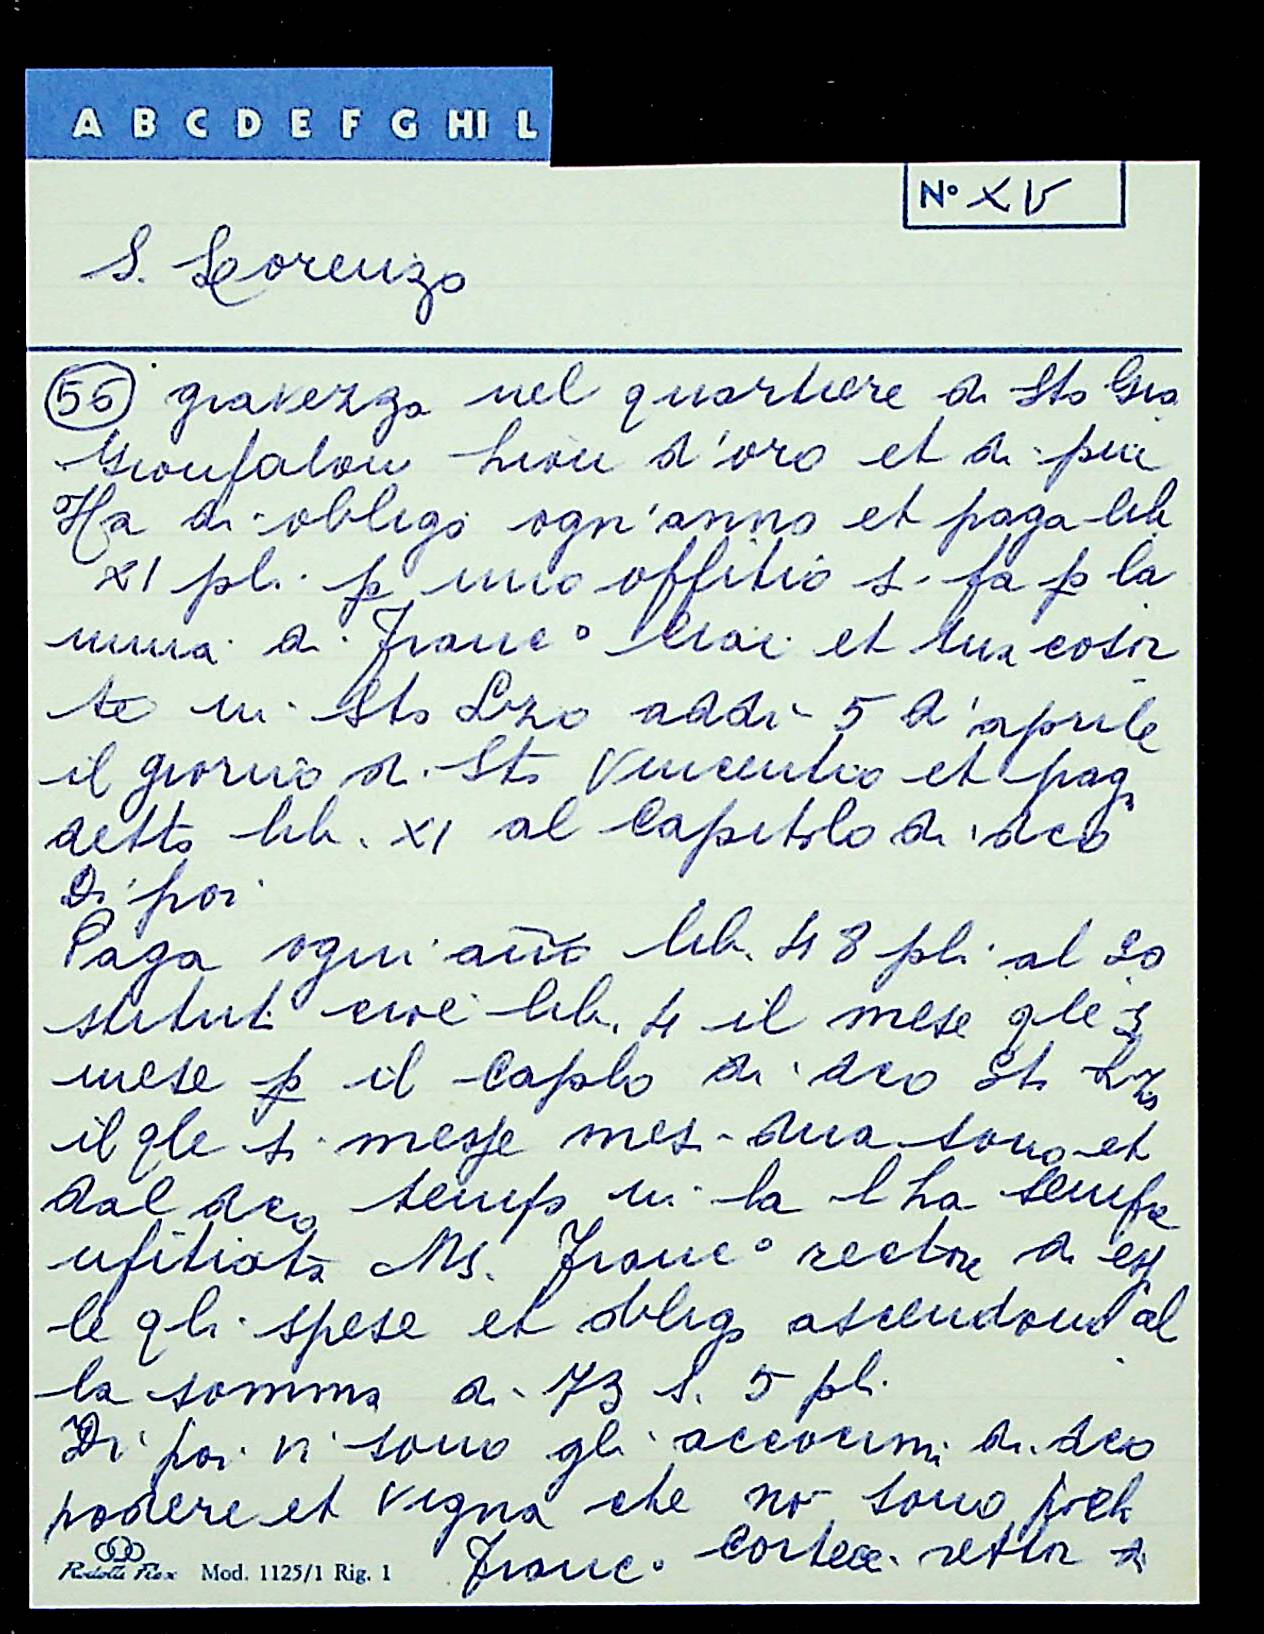 A B C D E F G HI L
Nº XV
S. Lorenzo
56 gravezza nel quartiere di Sto Gio
Gonfalon Lion d'oro et di piu
Ha di obligo ogn'anno et paga lib
XI pli. p uno offitio si fa p la
di Franc° et sua
te in Sto Lzo addi 5 d'aprile
il giorno di Sto Vincentio et paga
detto lib. XI al Capitolo di dco
Di poi
Paga ogni año lib. 48 pli al so
stitut cioè lib. 4 il mese qle
mese p il Caplo di dco Sto Lzo
il qle si messe mesi dua sono et
dal dco tempo in la l'ha sempre
ufitiata Ms. Franc° rectore di
le qli spese et obligo ascendono al
la somma di 73 s. 5 pli.
Di poi vi sono gli acconcimi di dco
podere et vigna che nō sono poch
Franc° rettor di
Mod. 1125/1 Rig. 1